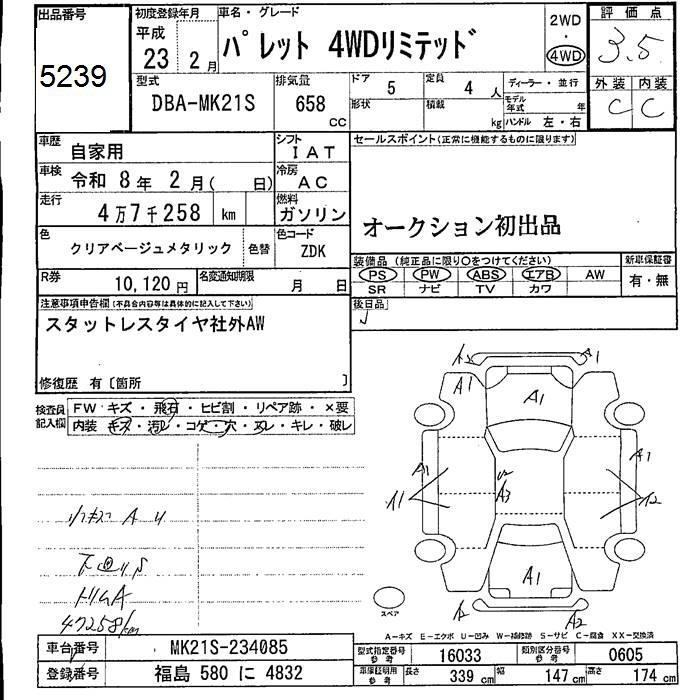 出品番号
5239
初度登録年月
平成
23 2月
車名・グレード
パレット 4WDリミテッド
2WD
・
4WD
評価点
3.5
外装 内装
C C
型式
DBA-MK21S
排気量
658
CC
ドア
5
定員
4人
形状
積載
kg
ディーラー・並行
モデル年式 年
ハンドル 左・右
車歴
自家用
シフト
IAT
車検
令和 8年 2月( 日)
冷房
AC
走行
4万7千258 km
燃料
ガソリン
色
クリアベージュメタリック
色替
色コード
ZDK
R券
10,120円
名変通知期限
月 日
セールスポイント(正常に機能するものに限ります)
オークション初出品
装備品(純正品に限り○をつけてください)
PS PW ABS エアB AW
SR ナビ TV カワ
新車保証書
有・無
後日品
注意事項申告欄(不具合内容等は具体的に記入して下さい)
スタットレスタイヤ社外AW
修復歴 有〔箇所 〕
検査員記入欄
FW キズ・飛石・ヒビ割・リペア跡・×要
内装 キズ・汚レ・コゲ・穴・ヌレ・キレ・破レ
A1
A1
A1
A1
A1
A1
A1
A2
U2
A3
A1
A2
A2
スペア
トリムA
47258km
A-キズ E-エクボ U-凹み W-補修跡 S-サビ C-腐食 XX-交換済
車台番号
MK21S-234085
登録番号
福島 580 に 4832
型式指定番号
参考
16033
類別区分番号
参考
0605
車庫証明用
参考
長さ 339 cm 幅 147 cm 高さ 174 cm